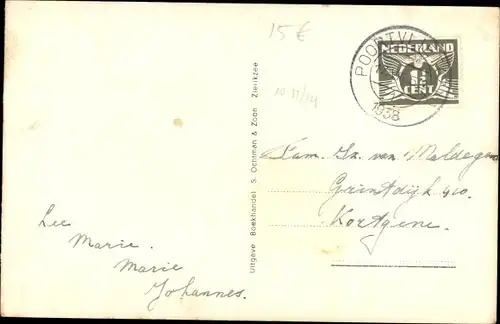 15€
POORTVLI
1938
NEDERLAND
1½
CENT
10 11/14
Uitgave Boekhandel S. Ochtman & Zoon Zierikzee
Fam. Sr. van Maldegem
Grintdijk 410.
Kortgene.
Lee
Marie.
Marie
Johannes.